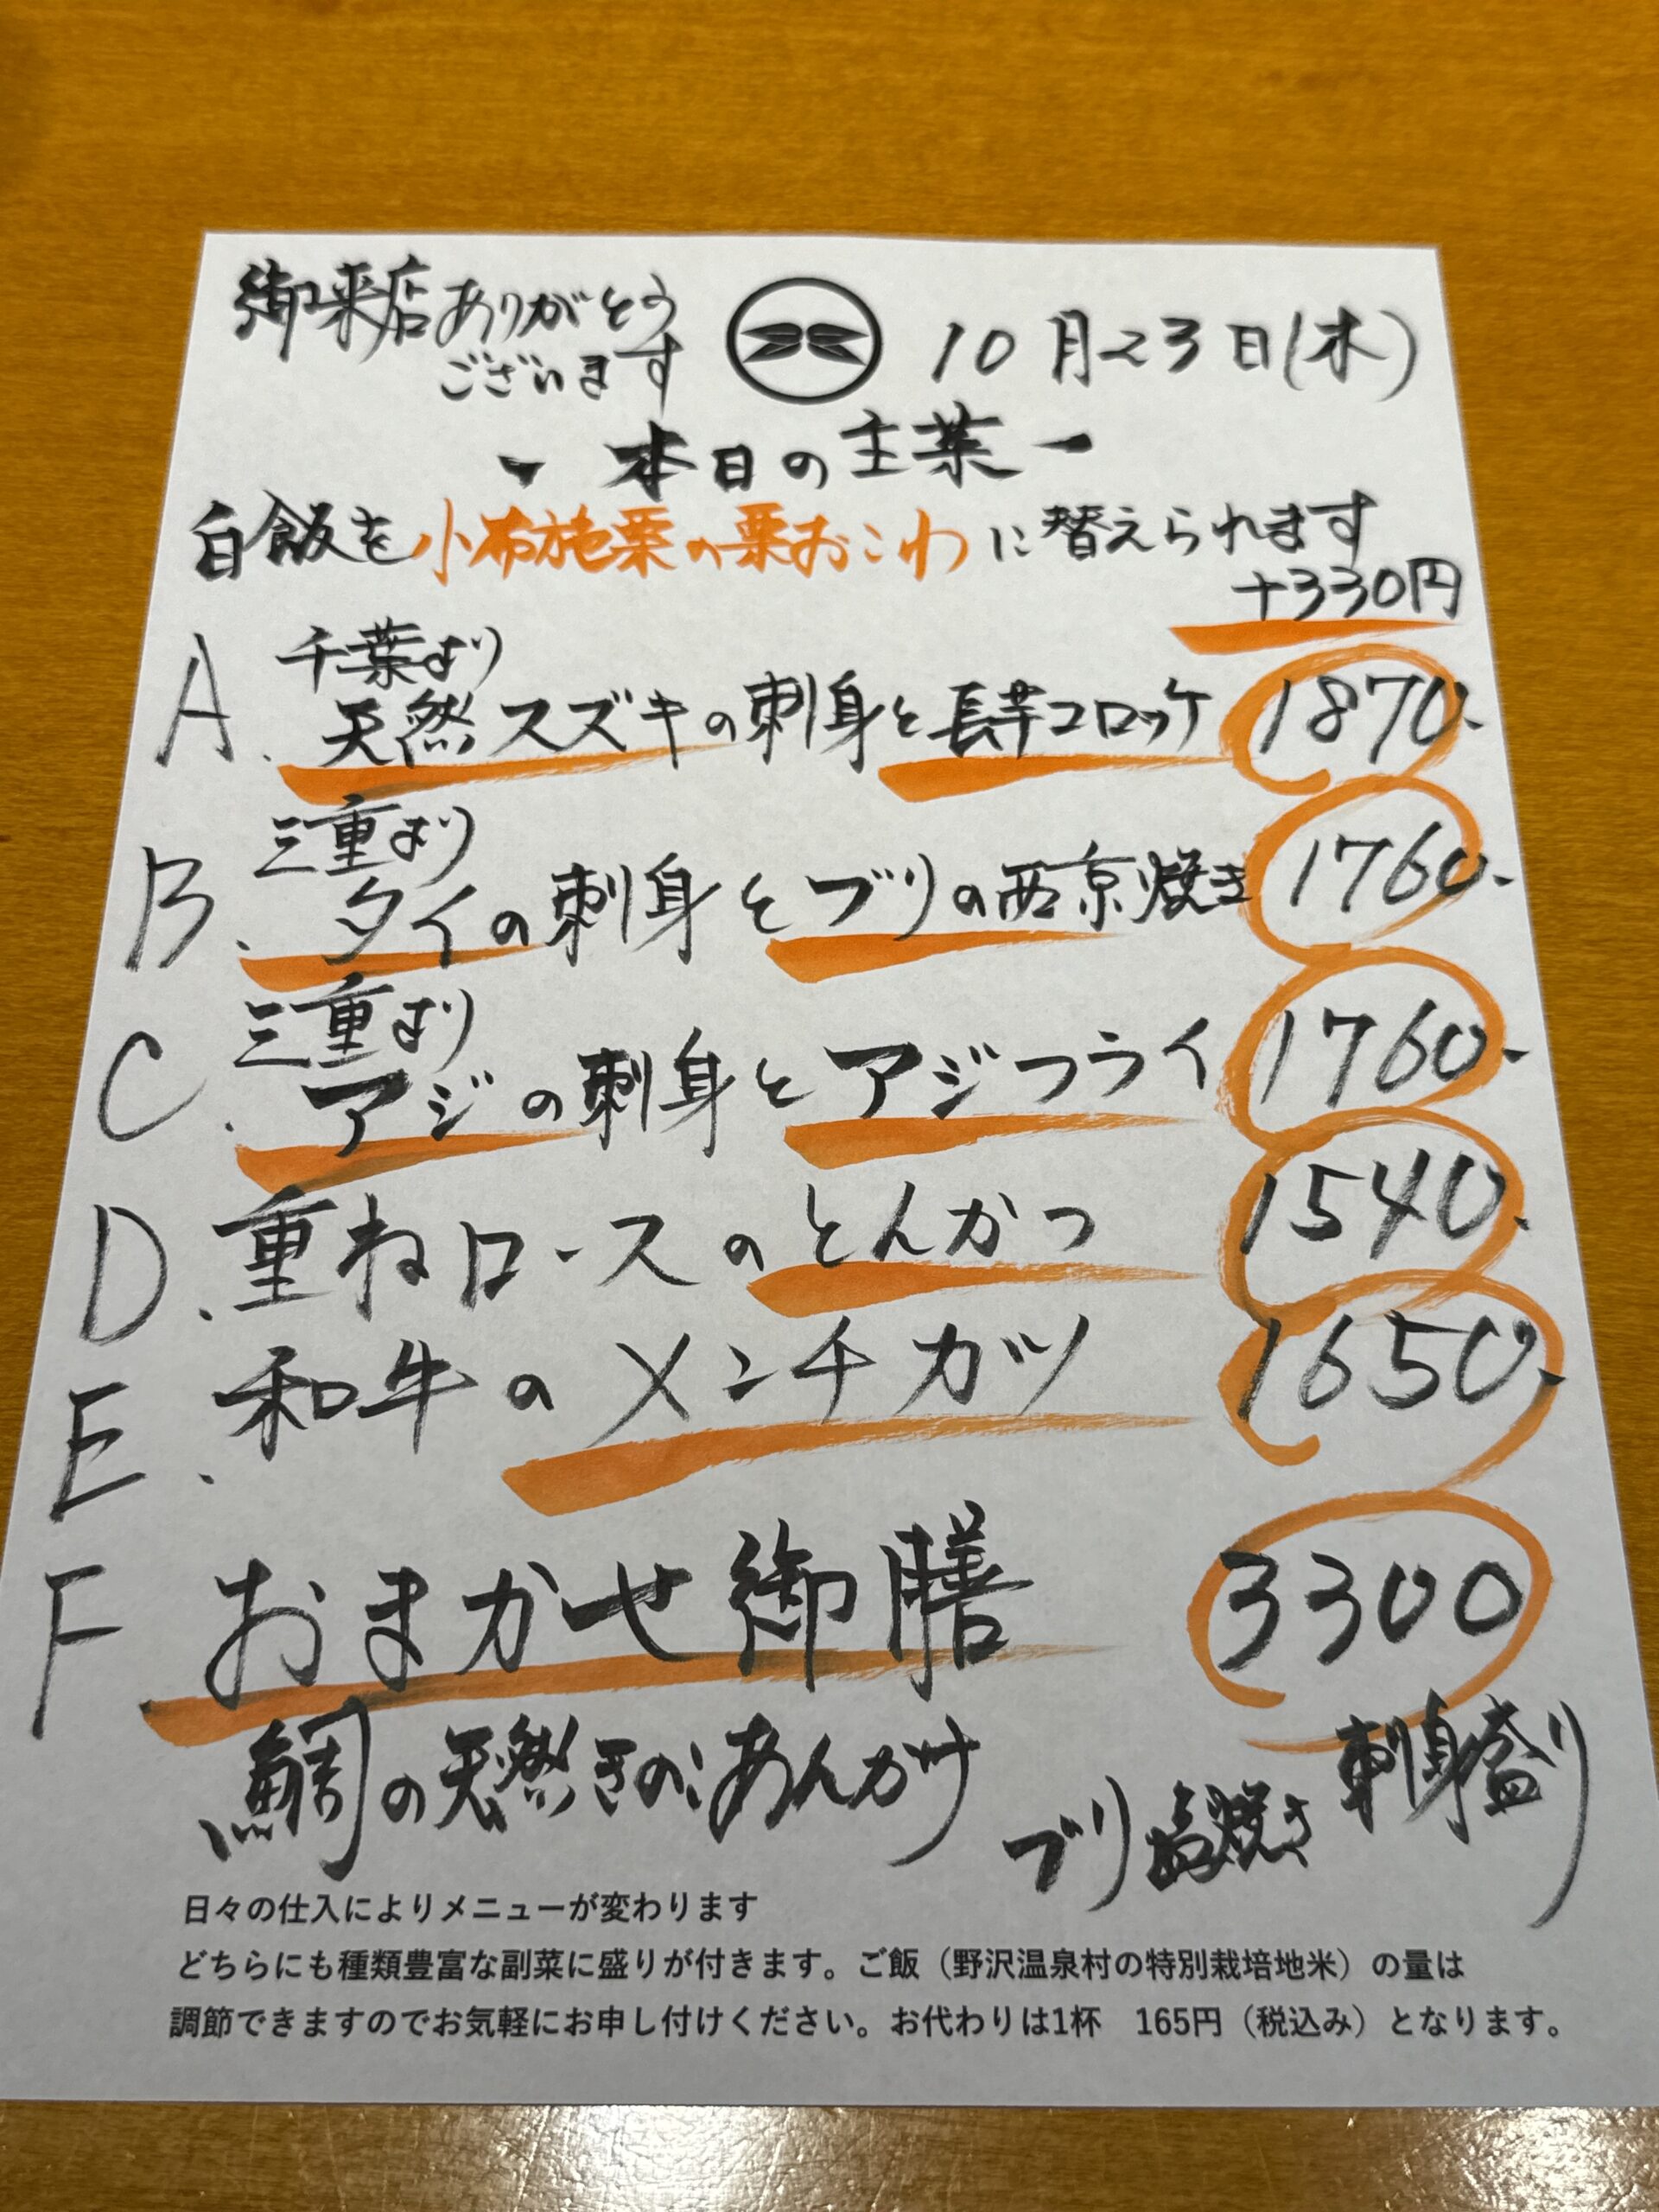 御来店ありがとう
ございます
10月23日(木)
- 本日の主菜 -
白飯を小布施栗の栗おこわに替えられます
+330円
千葉より
A. 天然スズキの刺身と長芋コロッケ 1870.-
三重より
B. タイの刺身とブリの西京焼き 1760.-
三重より
C. アジの刺身とアジフライ 1760.-
D. 重ねロースのとんかつ 1540.-
E. 和牛のメンチカツ 1650.-
F おまかせ御膳 3300
鯛の天然きのこあんかけ ブリ塩焼き 刺身盛り
日々の仕入によりメニューが変わります
どちらにも種類豊富な副菜に盛りが付きます。ご飯（野沢温泉村の特別栽培地米）の量は
調節できますのでお気軽にお申し付けください。お代わりは1杯　165円（税込み）となります。